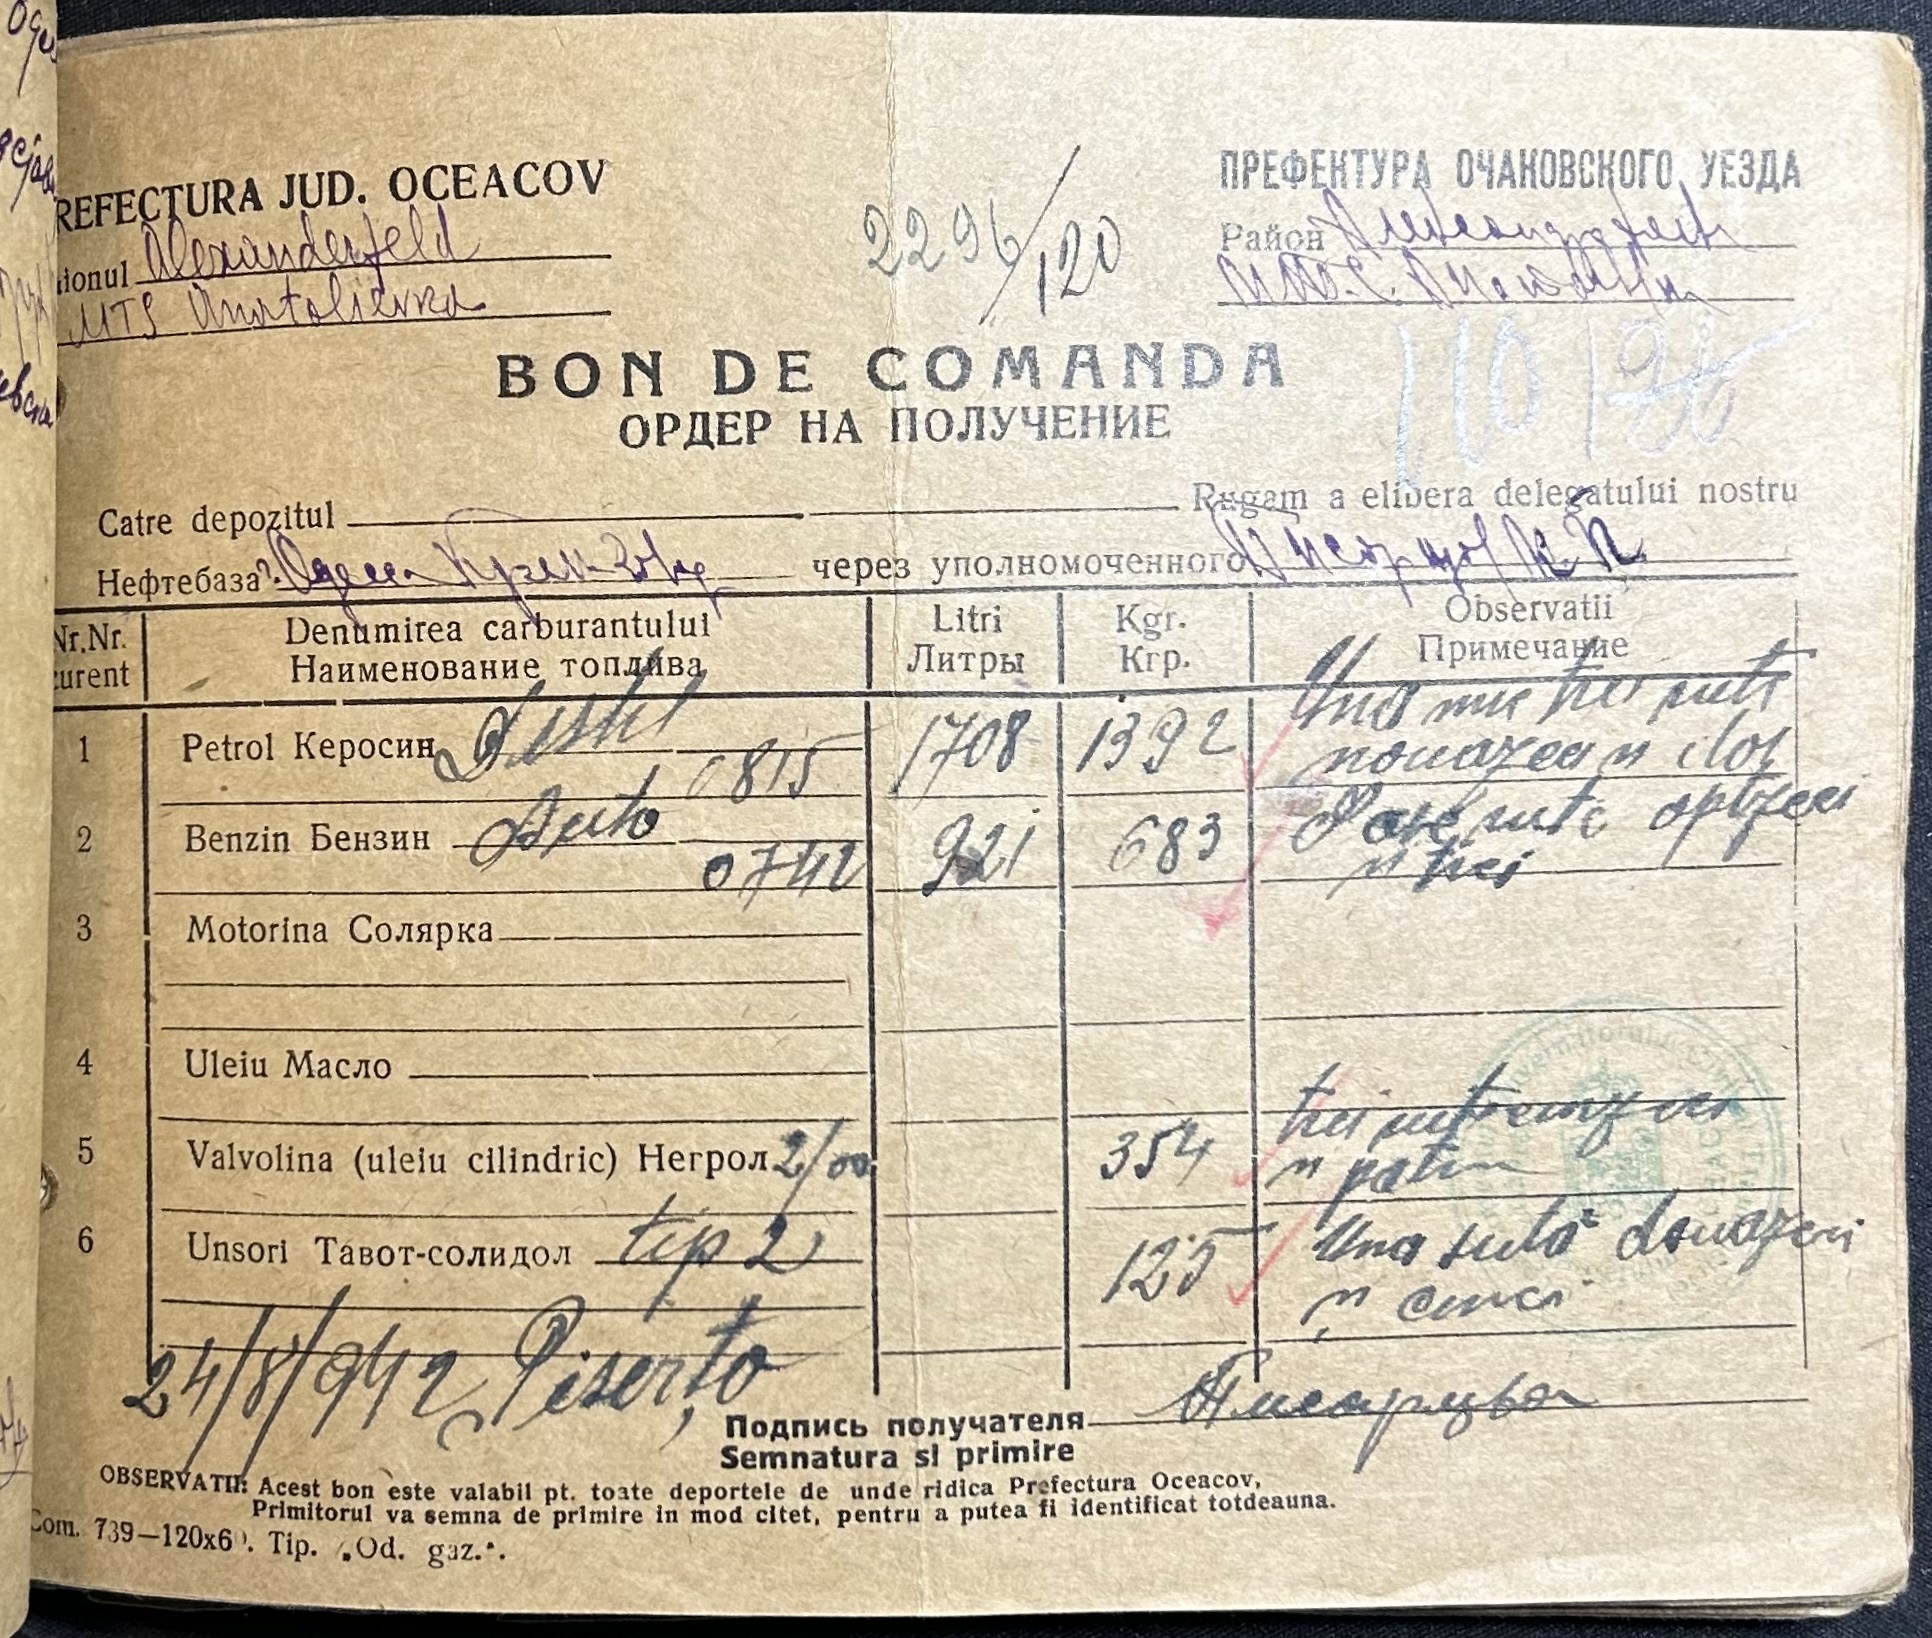 REFECTURA JUD. OCEACOV
ПРЕФЕКТУРА ОЧАКОВСКОГО УЕЗДА
ionul Alexanderfeld
2296/120
Район
MTS Anatolievka
М.Т.С.
BON DE COMANDA
ОРДЕР НА ПОЛУЧЕНИЕ
Catre depozitul
Rugam a elibera delegatului nostru
Нефтебаза г. Одесса
через уполномоченного
Nr.Nr. curent
Denumirea carburantului
Наименование топлива
Litri
Литры
Kgr.
Кгр.
Observatii
Примечание
1 Petrol Керосин 0815 1708 1392 Una mie trei sute
nouazeci si doi
2 Benzin Бензин Auto 0742 921 683 Sase sute optzeci
si trei
3 Motorina Солярка
4 Uleiu Масло
5 Valvolina (uleiu cilindric) Негрол 2/00 354 trei sute cinzeci
si patru
6 Unsori Тавот-солидол tip 2 125 Una sută douazeci
si cinci
24/8/942
Подпись получателя
Semnatura si primire
OBSERVATII: Acest bon este valabil pt. toate deportele de unde ridica Prefectura Oceacov,
Primitorul va semna de primire in mod citet, pentru a putea fi identificat totdeauna.
Com. 739—120x6 . Tip. „Od. gaz.".